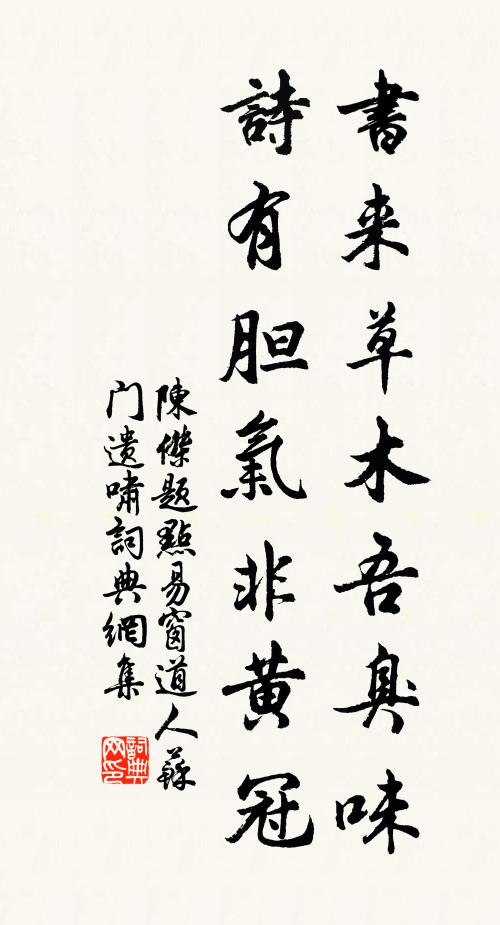 書来草木吾臭味
詩有胆氣非黄冠
陳傑題點易窗道人蘇
门遗嘯詞典網集
詞典网印